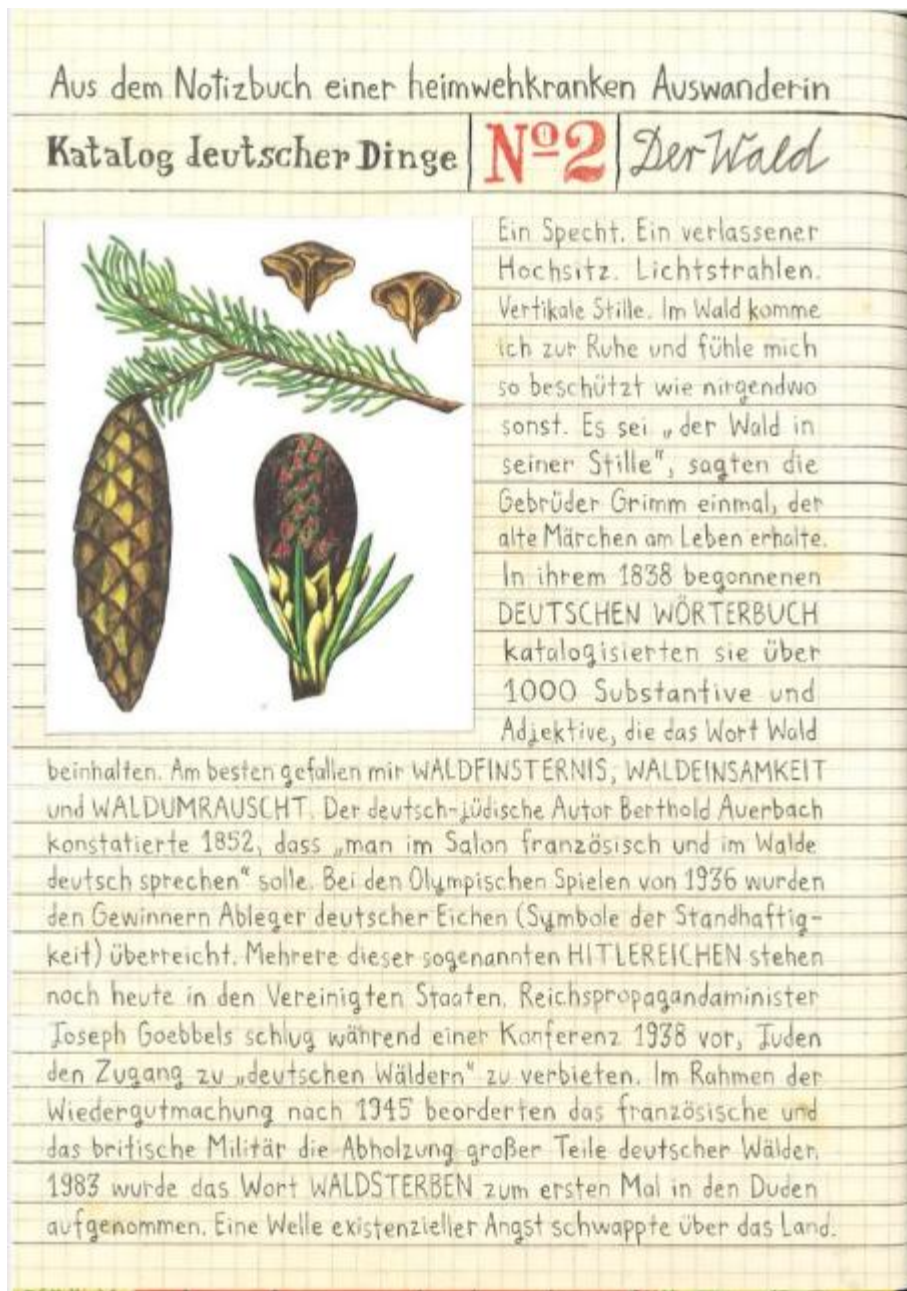 Aus dem Notizbuch einer heimwehkranken Auswanderin
Katalog deutscher Dinge Nº2 Der Wald
Ein Specht. Ein verlassener
Hochsitz. Lichtstrahlen.
Vertikale Stille. Im Wald komme
ich zur Ruhe und fühle mich
so beschützt wie nirgendwo
sonst. Es sei „der Wald in
seiner Stille“, sagten die
Gebrüder Grimm einmal, der
alte Märchen am Leben erhalte.
In ihrem 1838 begonnenen
DEUTSCHEN WÖRTERBUCH
katalogisierten sie über
1000 Substantive und
Adjektive, die das Wort Wald
beinhalten. Am besten gefallen mir WALDFINSTERNIS, WALDEINSAMKEIT
und WALDUMRAUSCHT. Der deutsch-jüdische Autor Berthold Auerbach
konstatierte 1852, dass „man im Salon französisch und im Walde
deutsch sprechen“ solle. Bei den Olympischen Spielen von 1936 wurden
den Gewinnern Ableger deutscher Eichen (Symbole der Standhaftig-
keit) überreicht. Mehrere dieser sogenannten HITLEREICHEN stehen
noch heute in den Vereinigten Staaten. Reichspropagandaminister
Joseph Goebbels schlug während einer Konferenz 1938 vor, Juden
den Zugang zu „deutschen Wäldern“ zu verbieten. Im Rahmen der
Wiedergutmachung nach 1945 beorderten das französische und
das britische Militär die Abholzung großer Teile deutscher Wälder.
1983 wurde das Wort WALDSTERBEN zum ersten Mal in den Duden
aufgenommen. Eine Welle existenzieller Angst schwappte über das Land.